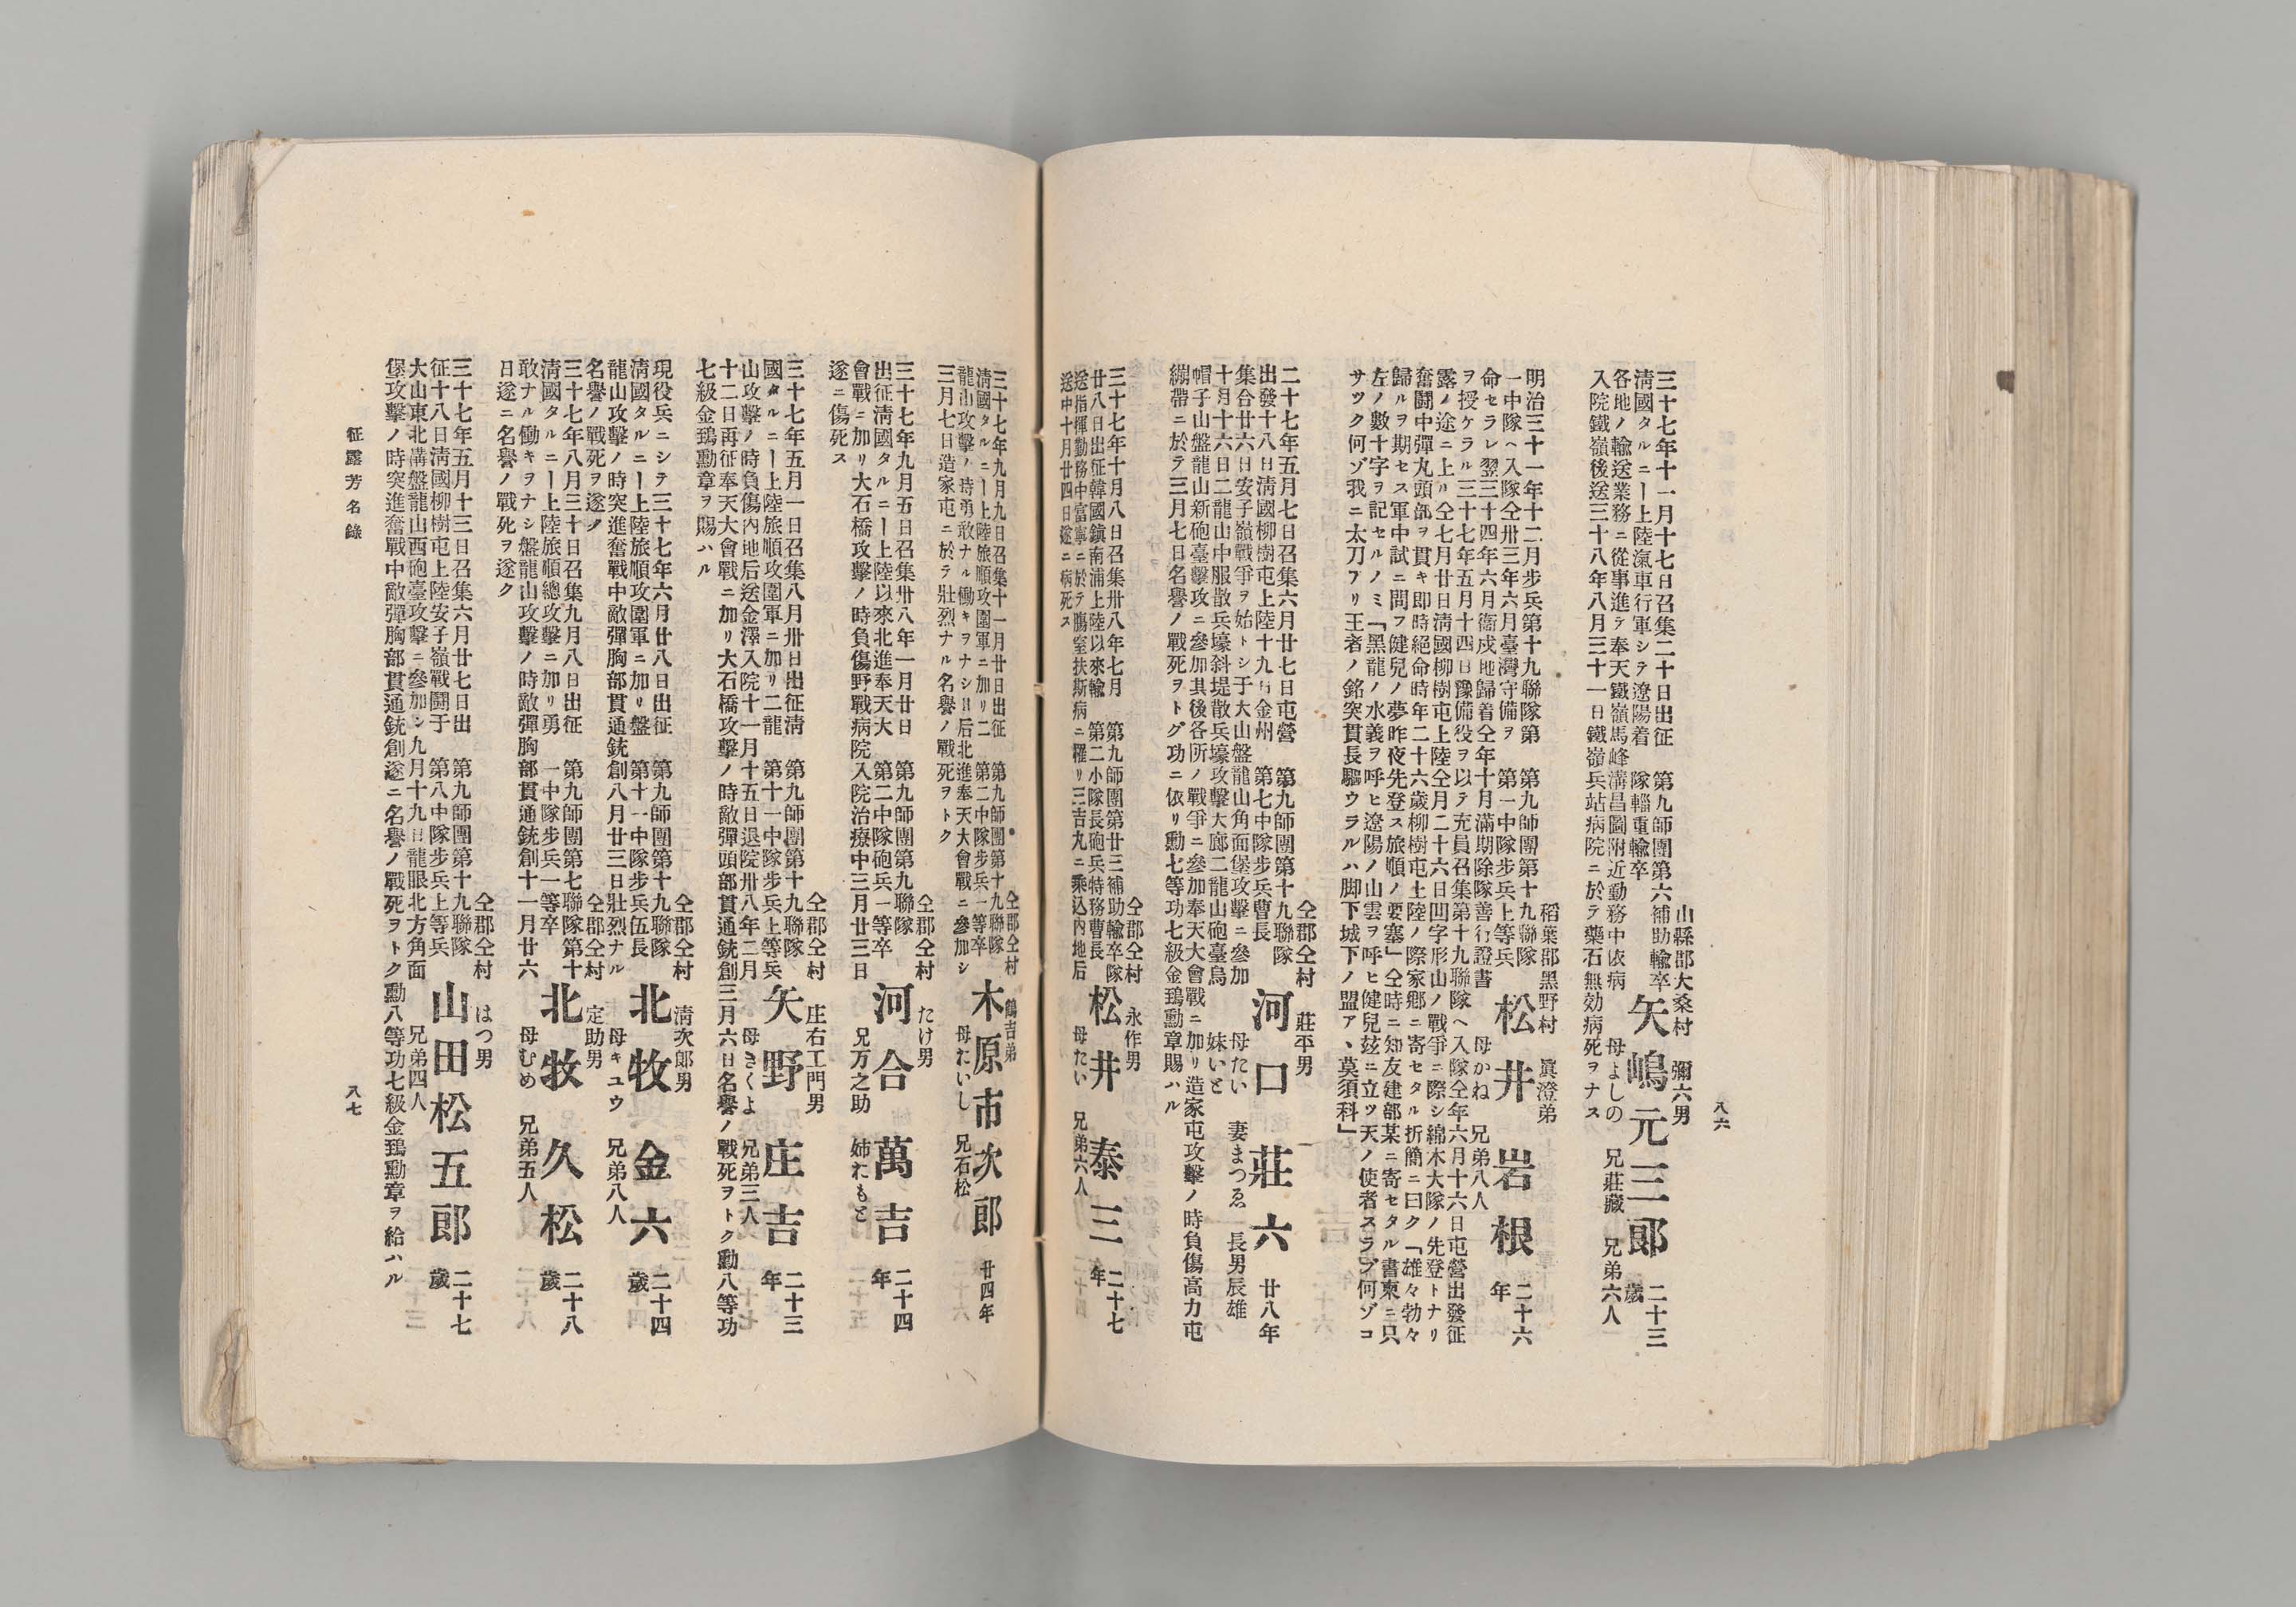 八六
山縣郡大桑村 彌六男
三十七年十一月十七日召集二十日出征 第九師團第六補助輸卒 矢嶋元三郎 二十三
清國タルニー上陸滊車行軍シテ遼陽着 隊輜重輸卒 母よしの 兄莊藏 兄弟六人 歲
各地ノ輸送業務ニ從事進テ奉天鐵嶺馬峰溝昌圖附近勤務中依病
入院鐵嶺後送三十八年八月三十一日鐵嶺兵站病院ニ於テ藥石無効病死ヲナス
稻葉郡黑野村 眞澄弟
明治三十一年十二月步兵第十九聯隊第 第九師團第十九聯隊 松井岩根 二十六
一中隊ヘ入隊仝卅三年六月臺灣守備ヲ 第一中隊步兵上等兵 母かね 兄弟八人 年
命セラレ翌三十四年六月衞戍地歸着仝年十月滿期除隊善行證書
ヲ授ケラル三十七年五月十四日豫備役ヲ以テ充員召集第十九聯隊ヘ入隊仝年六月十六日屯營出發征
露ノ途ニ上リ仝七月廿日淸國柳樹屯上陸仝月二十六日凹字形山ノ戰爭ニ際シ綿木大隊ノ先登トナリ
奮鬪中彈丸頭部ヲ貫キ卽時絕命時年二十六歲柳樹屯上陸ノ際家鄕ニ寄セタル折簡ニ曰ク「雄々勃々
歸ルヲ期セス軍中試ニ問フ健兒ノ夢昨夜先登ス旅順ノ要塞」仝時ニ知友建部某ニ寄セタル書柬ニ只
左ノ數十字ヲ記セルノミ「黑龍ノ水義ヲ呼ヒ遼陽ノ山雲ヲ呼ヒ健兒玆ニ立ツ天ノ使者スラブ何ゾコ
サツク何ゾ我ニ太刀アリ王者ノ銘突貫長驅ウラルハ脚下城下ノ盟ア、莫須科」
仝郡仝村 莊平男
二十七年五月七日召集六月廿七日屯營 第九師團第十九聯隊 河口莊六 廿八年
出發十八日淸國柳樹屯上陸十九日金州 第七中隊步兵曹長 母たい 妻まつゑ 長男辰雄
集合廿六日安子嶺戰爭ヲ始トシ于大山盤龍山角面堡攻擊ニ參加 妹いと
十月十六日二龍山中服散兵壕斜堤散兵壕攻擊大廊二龍山砲臺鳥
帽子山盤龍山新砲臺擊攻ニ參加其後各所ノ戰爭ニ參加奉天大會戰ニ加リ造家屯攻擊ノ時負傷高力屯
綳帶ニ於テ三月七日名譽ノ戰死ヲトグ功ニ依リ勳七等功七級金鵄勳章賜ハル
仝郡仝村 永作男
三十七年十月八日召集卅八年七月 第九師團第廿三補助輸卒隊 松井泰三 二十七
廿八日出征韓國鎭南浦上陸以來輸 第二小隊長砲兵特務曹長 母たい 兄弟六人 年
送指揮勤務中富寧ニ於テ膓窒扶斯病ニ罹リ三吉丸ニ乘込內地后
送中十月廿四日遂ニ病死ス
仝郡仝村 鶴吉弟
三十七年九月九日召集十一月廿日出征 第九師團第十九聯隊 木原市次郞 廿四年
淸國タルニー上陸旅順攻圍軍ニ加リ二 第二中隊步兵一等卒 母たいし 兄石松
龍山攻擊ノ時勇敢ナル働キヲナシ其后北進奉天大會戰ニ參加シ
三月七日造家屯ニ於テ壯烈ナル名譽ノ戰死ヲトク
仝郡仝村 たけ男
三十七年九月五日召集卅八年一月廿日 第九師團第九聯隊 河合萬吉 二十四
出征淸國タルニー上陸以來北進奉天大 第二中隊砲兵一等卒 兄万之助 姉たもと 年
會戰ニ加リ大石橋攻擊ノ時負傷野戰病院入院治療中三月廿三日
遂ニ傷死ス
仝郡仝村 庄右エ門男
三十七年五月一日召集八月卅日出征淸 第九師團第十九聯隊 矢野庄吉 二十三
國タルニー上陸旅順攻圍軍ニ加リ二龍 第十一中隊步兵上等兵 母きくよ 兄弟三人 年
山攻擊ノ時負傷內地后送金澤入院十一月十五日退院卅八年二月
十二日再征奉天大會戰ニ加リ大石橋攻擊ノ時敵彈頭部貫通銃創三月六日名譽ノ戰死ヲトク勳八等功
七級金鵄勳章ヲ賜ハル
仝郡仝村 淸次郞男
現役兵ニシテ三十七年六月廿八日出征 第九師團第十九聯隊 北牧金六 二十四
淸國タルニー上陸旅順攻圍軍ニ加リ盤 第十一中隊步兵伍長 母キユウ 兄弟八人 歲
龍山攻擊ノ時突進奮戰中敵彈胸部貫通銃創八月廿三日壯烈ナル
名譽ノ戰死ヲ遂ク
仝郡仝村 定助男
三十七年八月三十日召集九月八日出征 第九師團第七聯隊第十 北牧久松 二十八
淸國タルニー上陸旅順總攻擊ニ加リ勇 一中隊步兵一等卒 母むめ 兄弟五人 歲
敢ナル働キヲナシ盤龍山攻擊ノ時敵彈胸部貫通銃創十一月廿六
日遂ニ名譽ノ戰死ヲ遂ク
仝郡仝村 はつ男
三十七年五月十三日召集六月廿七日出 第九師團第十九聯隊 山田松五郞 二十七
征十八日淸國柳樹屯上陸安子嶺戰鬪于 第八中隊步兵上等兵 兄弟四人 歲
大山東北溝盤龍山西砲臺攻擊ニ參加シ九月十九日龍眼北方角面
堡攻擊ノ時突進奮戰中敵彈胸部貫通銃創遂ニ名譽ノ戰死ヲトク勳八等功七級金鵄勳章ヲ給ハル
征露芳名錄
八七